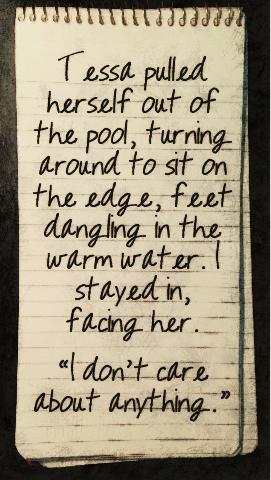 Tessa pulled
herself out of
the pool, turning
around to sit on
the edge, feet
dangling in the
warm water. I
stayed in,
facing her.
“I don't care
about anything.”